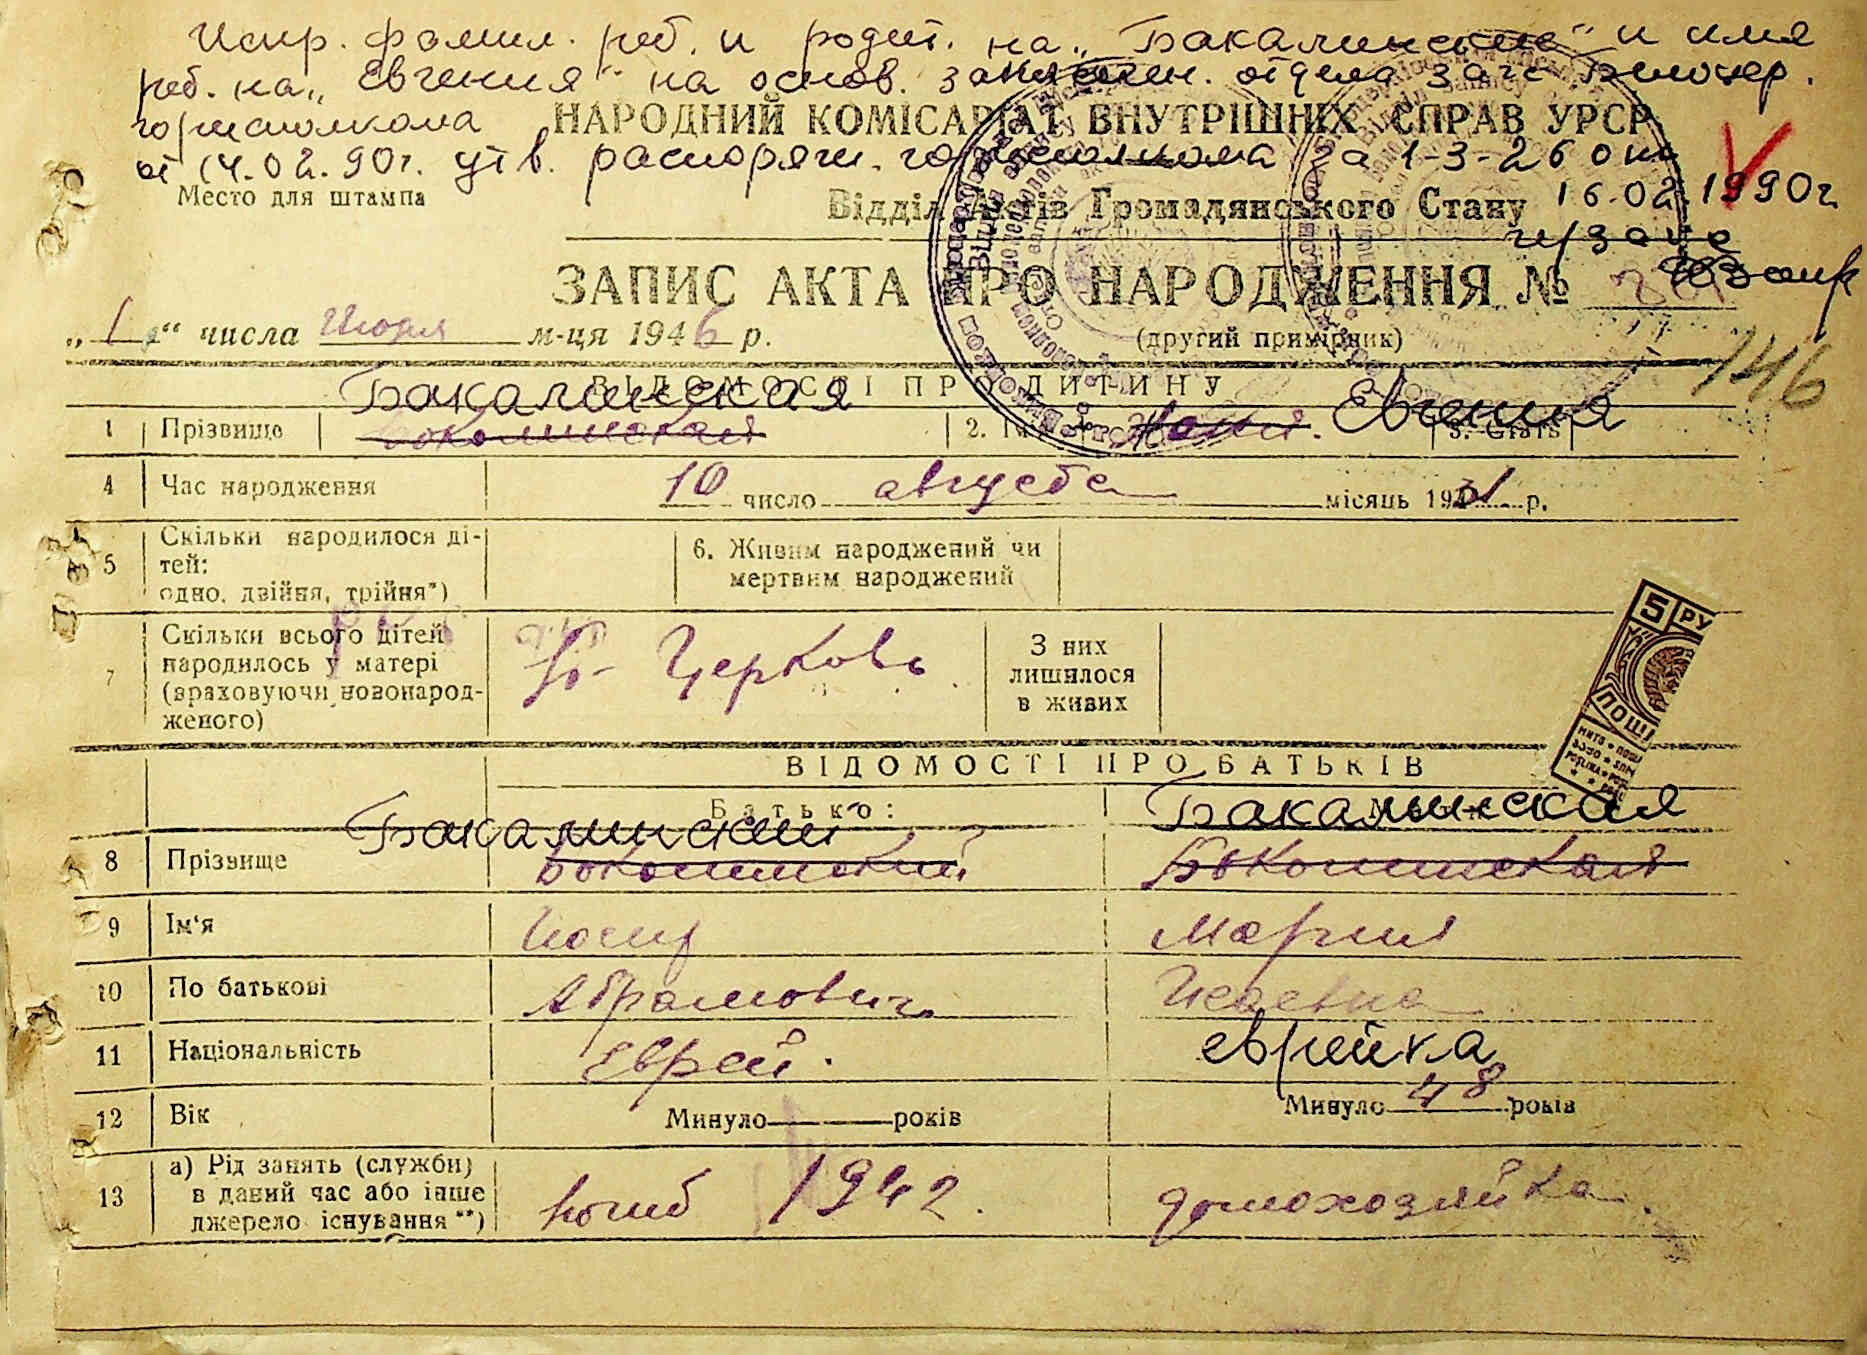 Испр. фамил. реб. и родит. на „Бакалинские" и имя
реб. на „Евгения" на основ. заключен. отдела загс Белоцер.
горисполкома
НАРОДНИЙ КОМІСАРІАТ ВНУТРІШНІХ СПРАВ УРСР
от 14.02.90г. утв. распоряж. горисполкома за 1-3-260 от
Место для штампа
Відділ Актів Громадянського Стану 16.02.1990г
ЗАПИС АКТА ПРО НАРОДЖЕННЯ №
„1" числа Июля м-ця 1946 р.
(другий примірник)
146
ВІДОМОСТІ ПРО ДИТИНУ
Бакалинская
1 Прізвище Бокалинская 2. Ім'я Женя. Евгения 3. Стать
4 Час народження 10 число августа місяць 1931 р.
5 Скільки народилося ді-
тей:
одно, двійня, трійня*)
6. Живим народжений чи
мертвим народжений
7 Скільки всього дітей
народилось у матері
(враховуючи новонарод-
женого)
Б- Церковь
З них
лишилося
в живих
5 РУ
ПОШ
ВІДОМОСТІ ПРО БАТЬКІВ
Батько:
Бакалинский Бакалинская
8 Прізвище Бокалинский Бокалинская
9 Ім'я Иосиф Мария
10 По батькові Абрамович Исаевна
11 Національність Еврей. еврейка
12 Вік Минуло років Минуло 48 років
13 а) Рід занять (служби)
в даний час або інше
джерело існування **)
погиб 1942. домохозяйка.